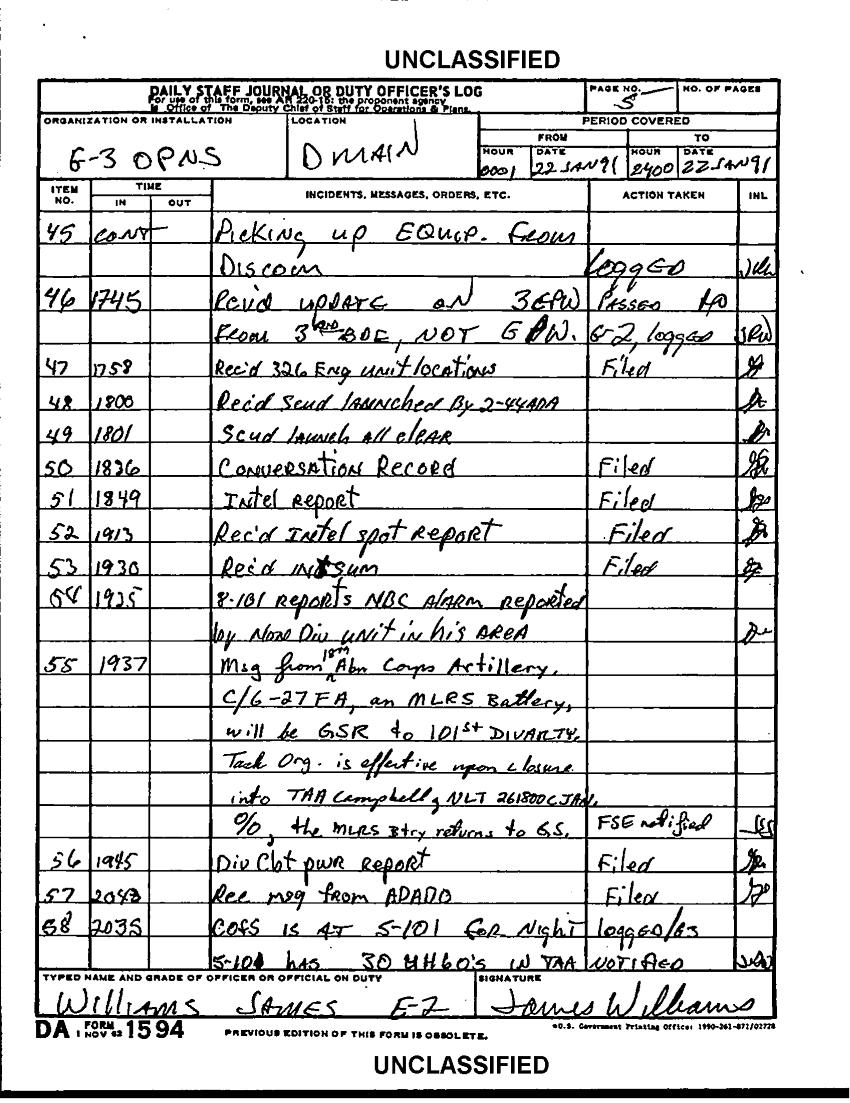 UNCLASSIFIED
DAILY STAFF JOURNAL OR DUTY OFFICER'S LOG
For use of this form, see AR 220-15; the proponent agency
is Office of The Deputy Chief of Staff for Operations & Plans.
PAGE NO.
5
NO. OF PAGES
ORGANIZATION OR INSTALLATION
G-3 OPNS
LOCATION
D MAIN
PERIOD COVERED
FROM
TO
HOUR
0001
DATE
22 JAN 91
HOUR
2400
DATE
22 JAN 91
ITEM NO.
TIME
IN
OUT
INCIDENTS, MESSAGES, ORDERS, ETC.
ACTION TAKEN
INL
45 CONT Picking up EQUIP. from
Discom logged
46 1745 Rcv'd UPDATE ON 3 EPW PASSED TO
from 3RD BDE, NOT EPW. G-2, logged JRW
47 1758 Rec'd 326 Eng unit locations Filed
48 1800 Rec'd Scud launched By 2-44 ADA
49 1801 Scud launch All clear
50 1836 Conversation Record Filed
51 1849 Intel Report Filed
52 1913 Rec'd Intel spot Report Filed
53 1930 Rec'd INTSUM Filed
54 1925 8-101 Reports NBC Alarm reported
by None Div unit in his AREA
55 1937 Msg from 18th Abn Corps Artillery.
C/6-27 FA, an MLRS Battery,
will be GSR to 101st DIVARTY.
Task Org. is effective upon closure
into TAA Campbell, NLT 261800C JAN.
O/O, the MLRS Btry returns to GS. FSE notified
56 1945 Div Cbt pwr Report Filed
57 2043 Rec msg from ADADO Filed
58 2035 COFS IS AT 5-101 for Night logged/G3
5-101 has 30 UH60's IN TAA NOTIFIED
TYPED NAME AND GRADE OF OFFICER OR OFFICIAL ON DUTY
WILLIAMS JAMES E-7
SIGNATURE
James Williams
DA FORM 1 NOV 62 1594
PREVIOUS EDITION OF THIS FORM IS OBSOLETE.
*U.S. Government Printing Office: 1990-261-872/02728
UNCLASSIFIED